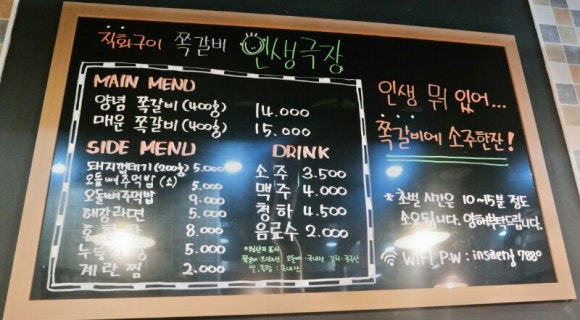 직화구이 쪽갈비 인생극장
MAIN MENU
양념 쪽갈비 (400g) 14.000
매운 쪽갈비 (400g) 15.000
SIDE MENU
돼지껍데기 (200g) 5.000
오돌뼈주먹밥 (소) 5.000
오돌뼈주먹밥 9.000
해장라면 5.000
8.000
5.000
계란찜 2.000
DRINK
소주 3.500
맥주 4.000
청하 4.500
음료수 2.000
*원산지 표시
인생 뭐 있어...
쪽갈비에 소주한잔!
*초벌 시간은 10~15분 정도
소요됩니다. 양해부탁드립니다.
WIFI PW : insaeng 7880